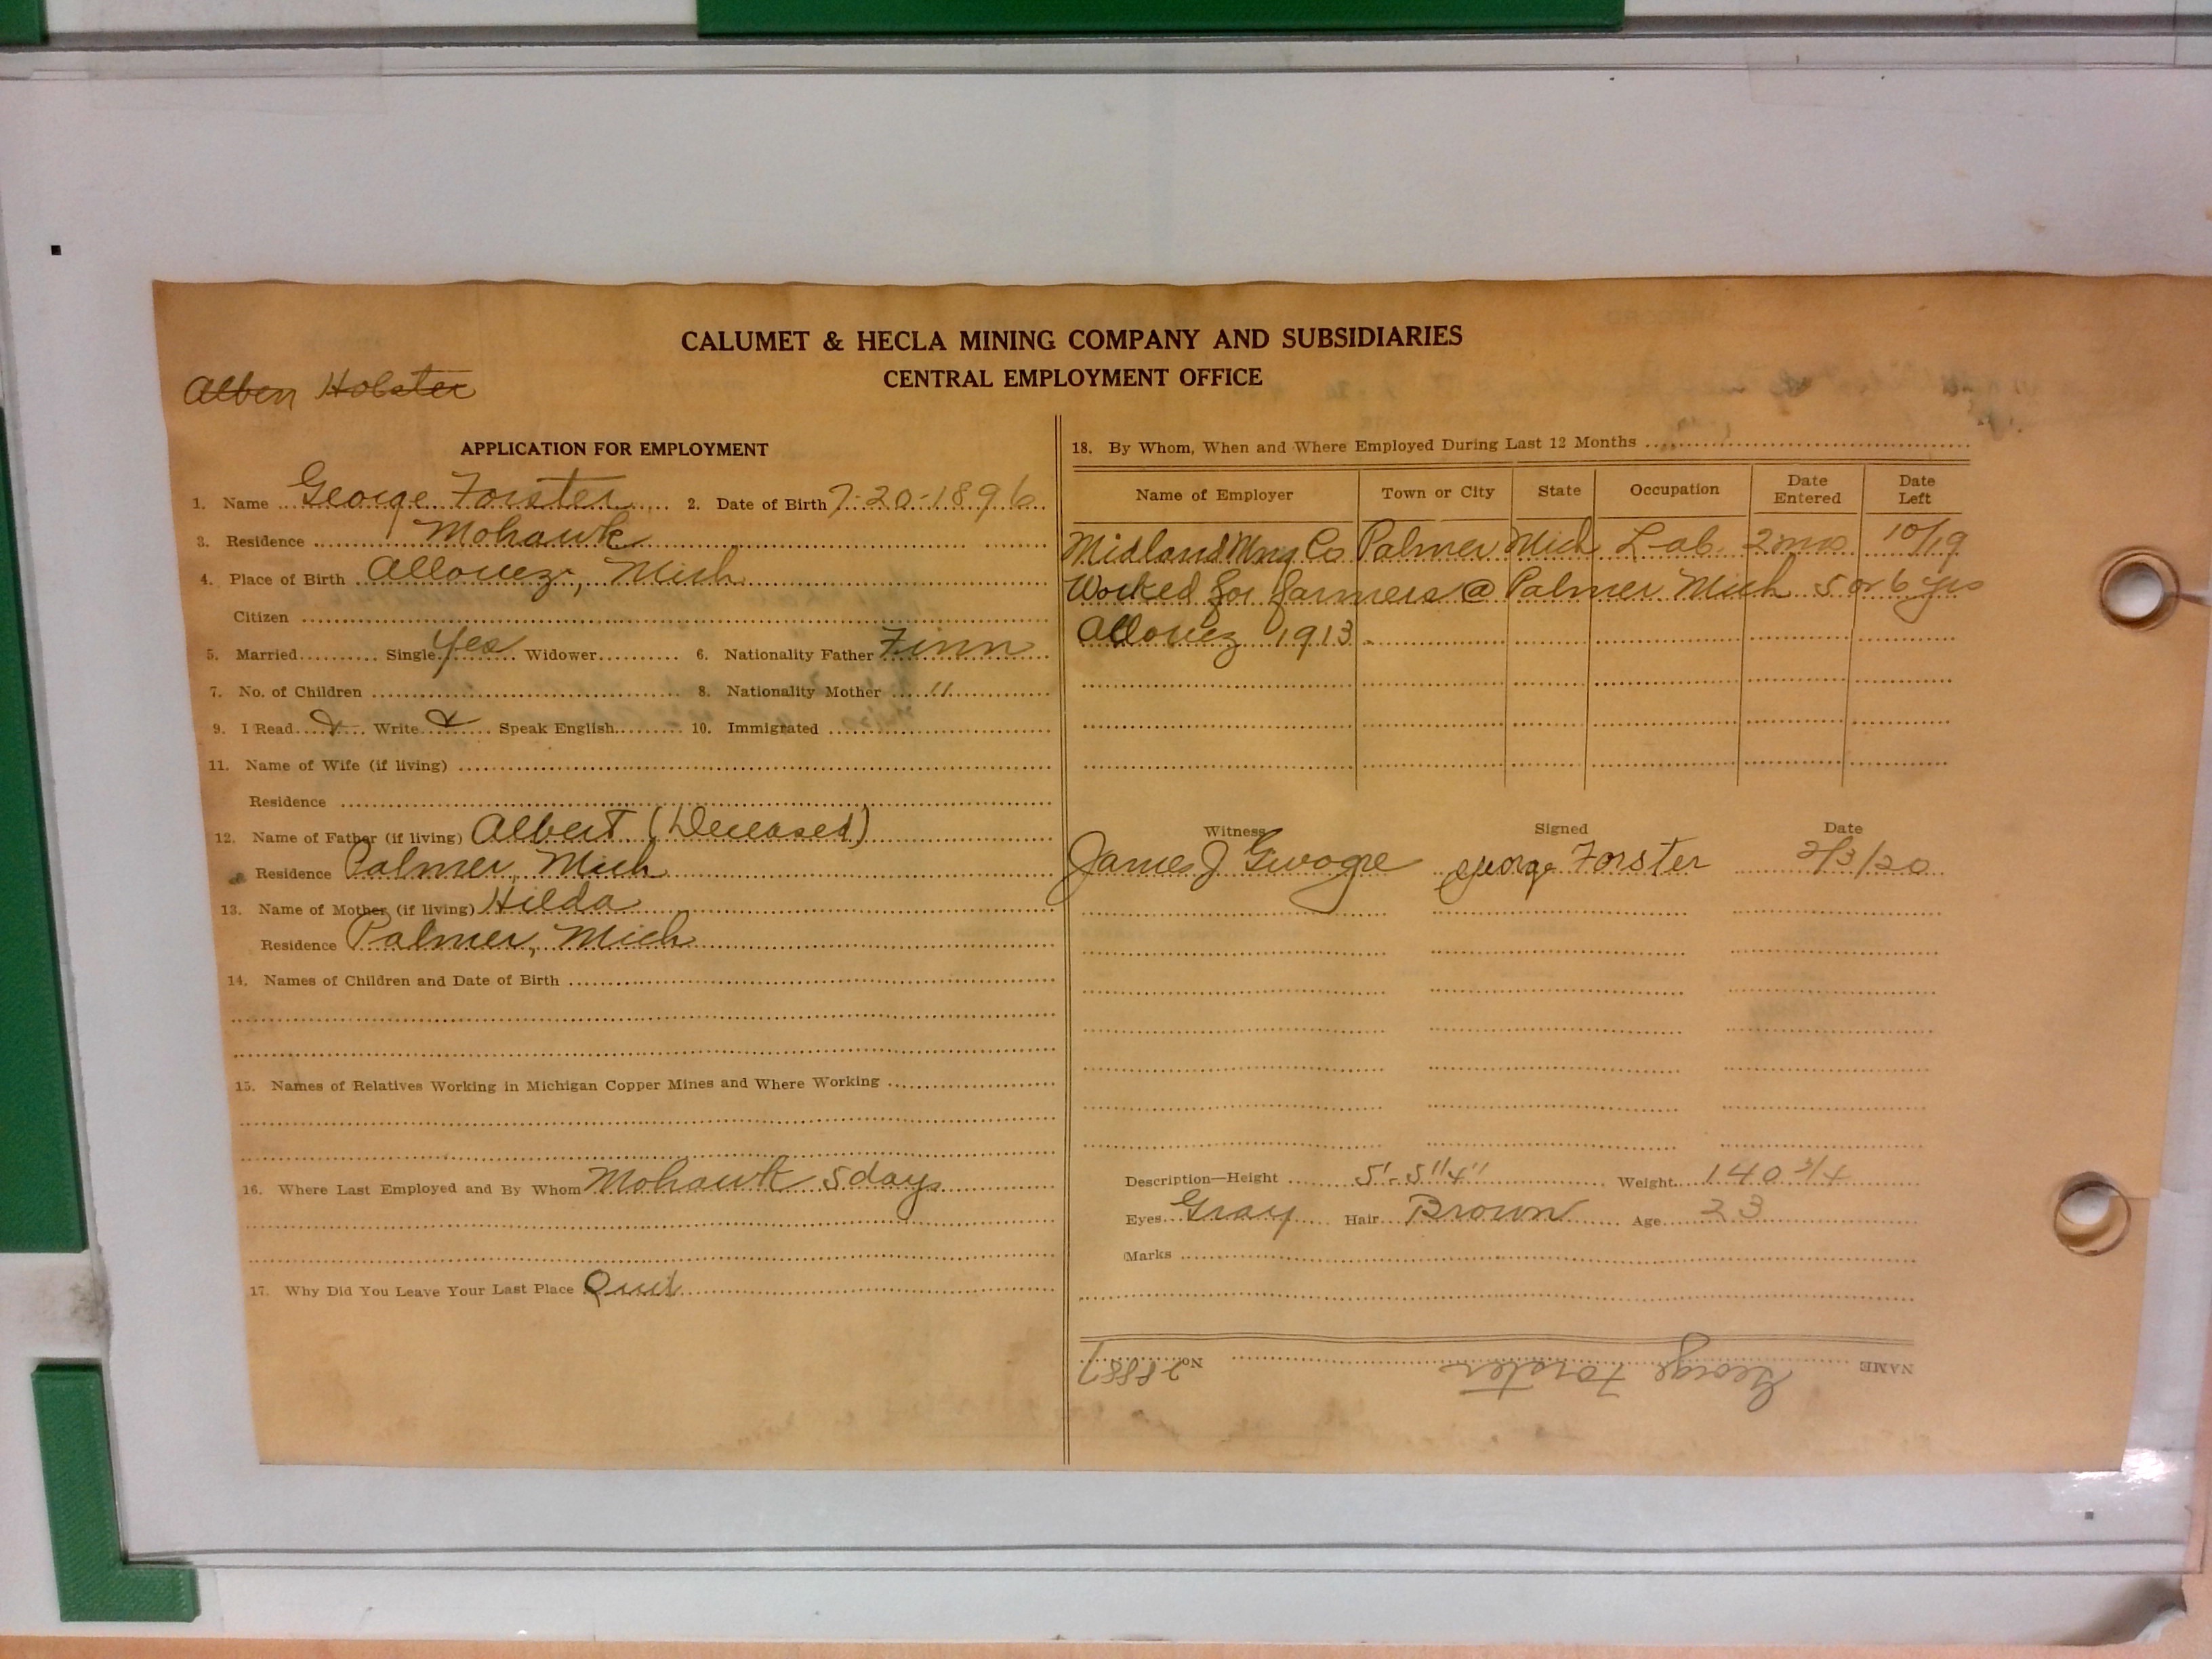 CALUMET & HECLA MINING COMPANY AND SUBSIDIARIES
CENTRAL EMPLOYMENT OFFICE
Alben Hobster
APPLICATION FOR EMPLOYMENT
1. Name George Forster 2. Date of Birth 7-20-1896
3. Residence Mohawk
4. Place of Birth Allouez, Mich
Citizen
5. Married Single Yes Widower 6. Nationality Father Finn
7. No. of Children 8. Nationality Mother "
9. I Read Write Speak English 10. Immigrated
11. Name of Wife (if living)
Residence
12. Name of Father (if living) Albert (Deceased)
Residence Palmer, Mich
13. Name of Mother (if living) Hilda
Residence Palmer, Mich
14. Names of Children and Date of Birth
15. Names of Relatives Working in Michigan Copper Mines and Where Working
16. Where Last Employed and By Whom Mohawk 5 days
17. Why Did You Leave Your Last Place Quit
18. By Whom, When and Where Employed During Last 12 Months
Name of Employer Town or City State Occupation Date Entered Date Left
Midland Mng Co Palmer Mich Lab. 2 mos 10/19
Worked for farmers @ Palmer Mich 5 or 6 yrs
Allouez 1913
Witness Signed Date
James J George Forster 2/3/20
Description—Height 5'-5" Weight 140 3/4
Eyes Gray Hair Brown Age 23
Marks
NAME George Forster No. 28887